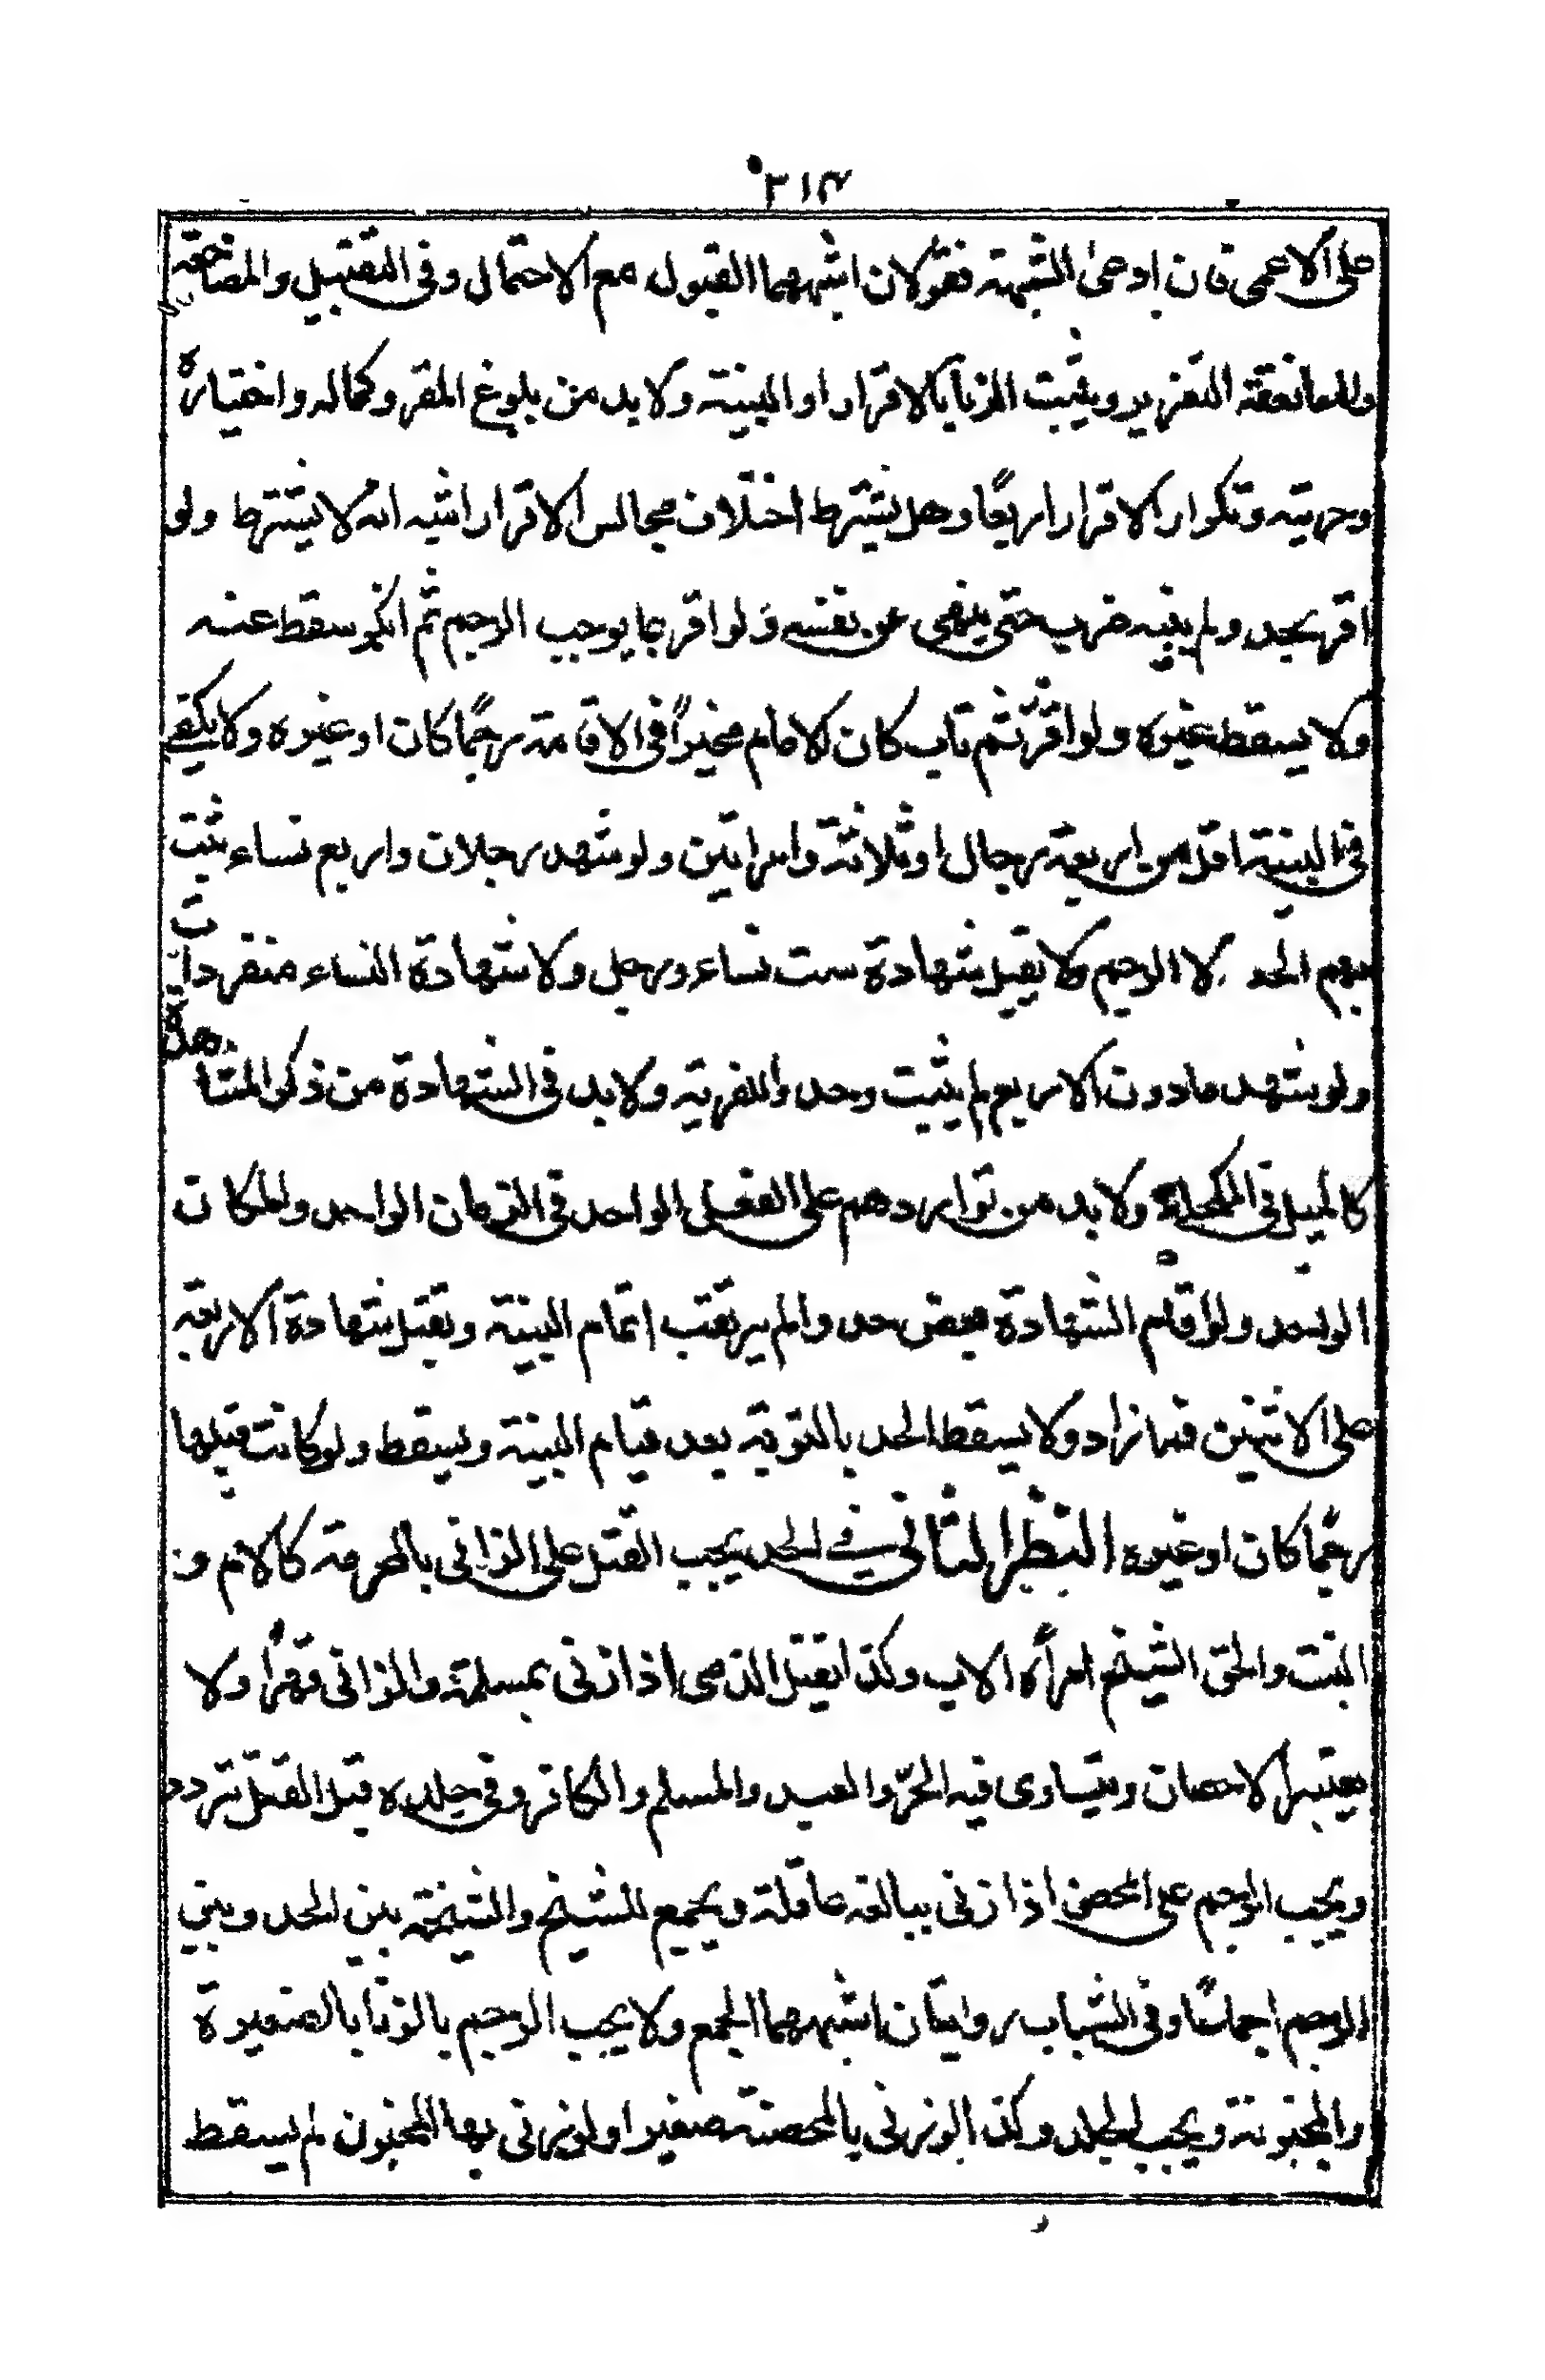 ٢١٣
على الاعمى فان ادعى الشبهة فقولان اشبههما القبول مع الاحتمال وفى التقبيل والمضاجعة
والمعانقة التعزير ويثبت الزنا بالاقرار او البينة ولا بد من بلوغ المقر وكماله واختياره
وحريته وتكرار الاقرار اربعًا وهل يشترط اختلاف مجالس الاقرار اشبه انه لا يشترط ولو
اقر بحد ولم يبينه ضرب حتى ينهى عن نفسه ولو اقر بما يوجب الرجم ثم انكر سقط عنه
ولا يسقط غيره ولو اقرّ ثم تاب كان الامام مخيرًا فى الاقامة رجمًا كان او غيره ولا يكفى
فى البينة اقل من اربعة رجال او ثلاثة وامراتين ولو شهد رجلان واربع نساء يثبت
بهم الحد لا الرجم ولا يقبل شهادة ست نساء ورجل ولا شهادة النساء منفردات
ولو شهد مادون الاربع لم يثبت وحد واللفرية ولا بد فى الشهادة من ذكر المشاهدة
كالميل فى المكحلة ولا بد من تواردهم على الفعل الواحد فى الزمان الواحد والمكان
الواحد ولو اقام الشهادة بعض حد والم يرتقب اتمام البينة وتقبل شهادة الاربعة
على الاثنين فما زاد ولا يسقط الحد بالتوبة بعد قيام البينة ويسقط ولو كانت قبلها
رجمًا كان او غيره النظر الثانى فى الحد يجب القتل على الزانى بالمحرمة كالام و
البنت والحق الشيخ امرأه الاب وكذا يقتل الذمى اذا زنى بمسلمة والزانى قهرًا ولا
يعتبر الاحصان ويتساوى فيه الحرّ والعبد والمسلم والكافر وفى جلده قبل القتل تردد
ويجب الرجم على المحصن اذا زنى ببالغه عاقلة ويجمع للشيخ والشيخة بين الحد وبين
الرجم اجماعًا وفى الشباب روايتان اشبههما الجمع ولا يجب الرجم بالزنا بالصغيرة
والمجنونة ويجب الجلد وكذا لو زنى بالمحصنة صغير او لو زنى بها المجنون لم يسقط